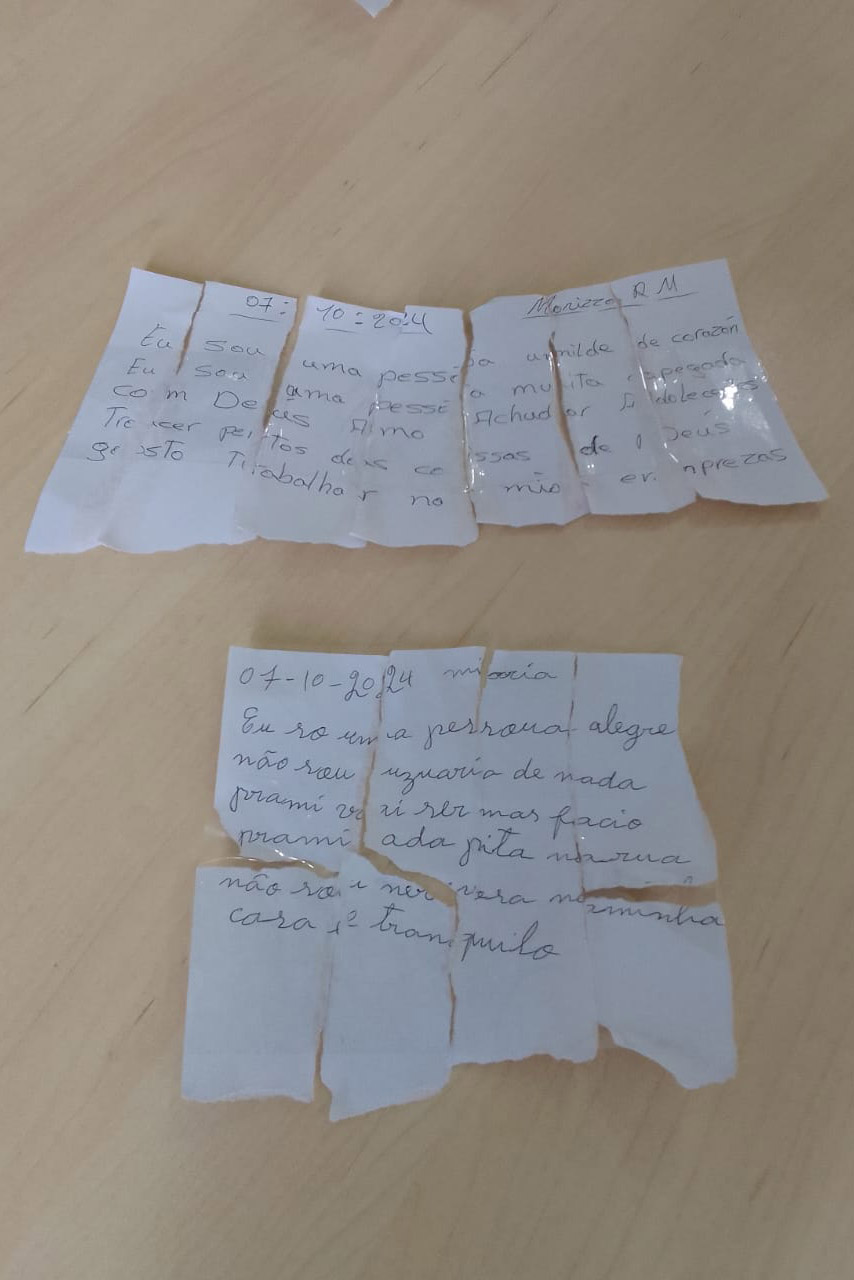 07: 10:2024 Morizze R M
Eu sou uma pessoa umilde de corazón
Eu sou uma pessoa muita apegada
com Deus Amo Achudar A
Tracer peitos deus coissas de Deús
gosto Trabalhar no mis emprezas
07-10-2024
Eu so uma persoua alegre
não sou uzuaria de nada
prami vai ser mas facio
prami ada pita narua
não sou nervosa naminha
casa é tranquilo